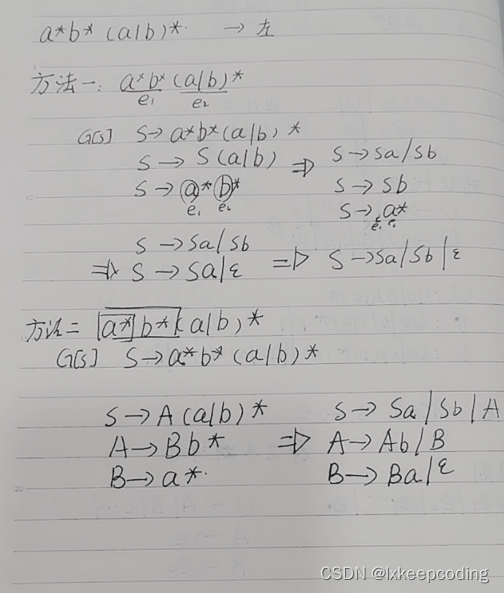 a*b*(a|b)* → 左
方法一: a*b*(a|b)*
e₁ e₂
G[S] S→a*b*(a|b)*
S→S(a|b) ⇒ S→Sa/Sb
S→a*b* S→Sb
e₁ e₂ S→εa*
e₁ e₂
S→Sa/Sb
⇒ S→Sa|ε ⇒ S→Sa|Sb|ε
方法二 a*b*(a|b)*
G[S] S→a*b*(a|b)*
S→A(a|b)* S→Sa|Sb|A
A→Bb* ⇒ A→Ab/B
B→a* B→Ba|ε
CSDN @lxkeepcoding